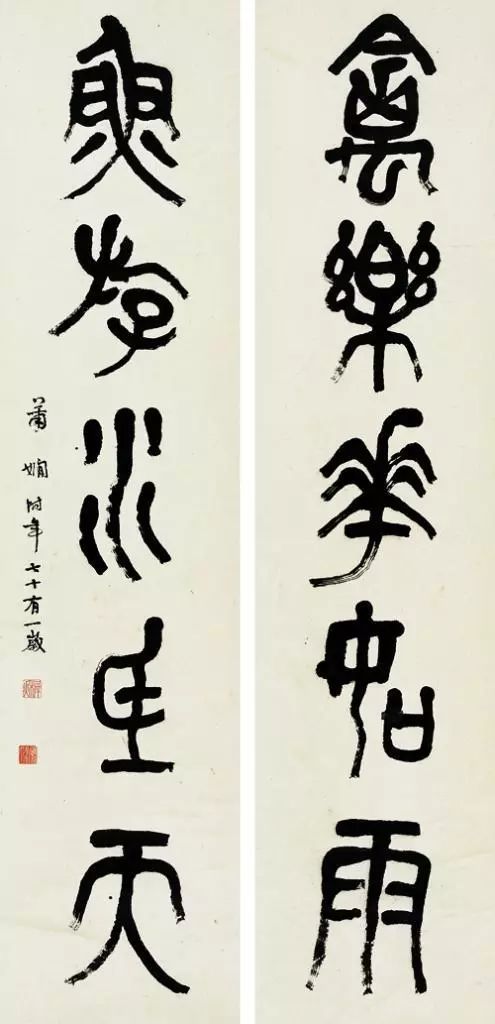 禽樂華如雨
魚斿水在天
蕭嫻時年七十有一歲